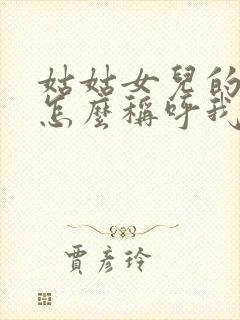 姑姑女兒的
怎麼稱呼我
賈彥玲